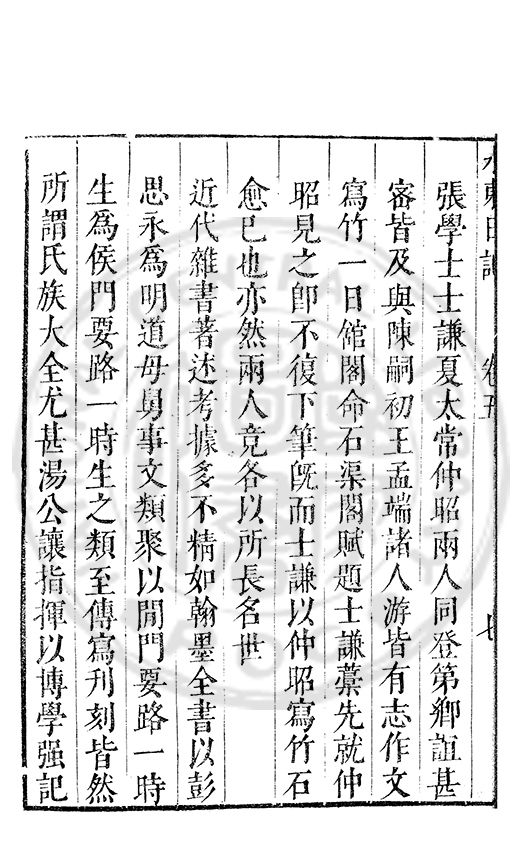 水東日記 卷五 七
張學士士謙夏太常仲昭兩人同登第鄉誼甚
密皆及與陳嗣初王孟端諸人游皆有志作文
寫竹一日館閣命石渠閣賦題士謙藁先就仲
昭見之卽不復下筆旣而士謙以仲昭寫竹石
愈已也亦然兩人竞各以所長名世
近代雜書著述考據多不精如翰墨全書以彭
思永爲明道母舅事文類聚以閒門要路一時
生爲侯門要路一時生之類至傳寫刊刻皆然
所謂氏族大全尤甚湯公讓指揮以博學强記